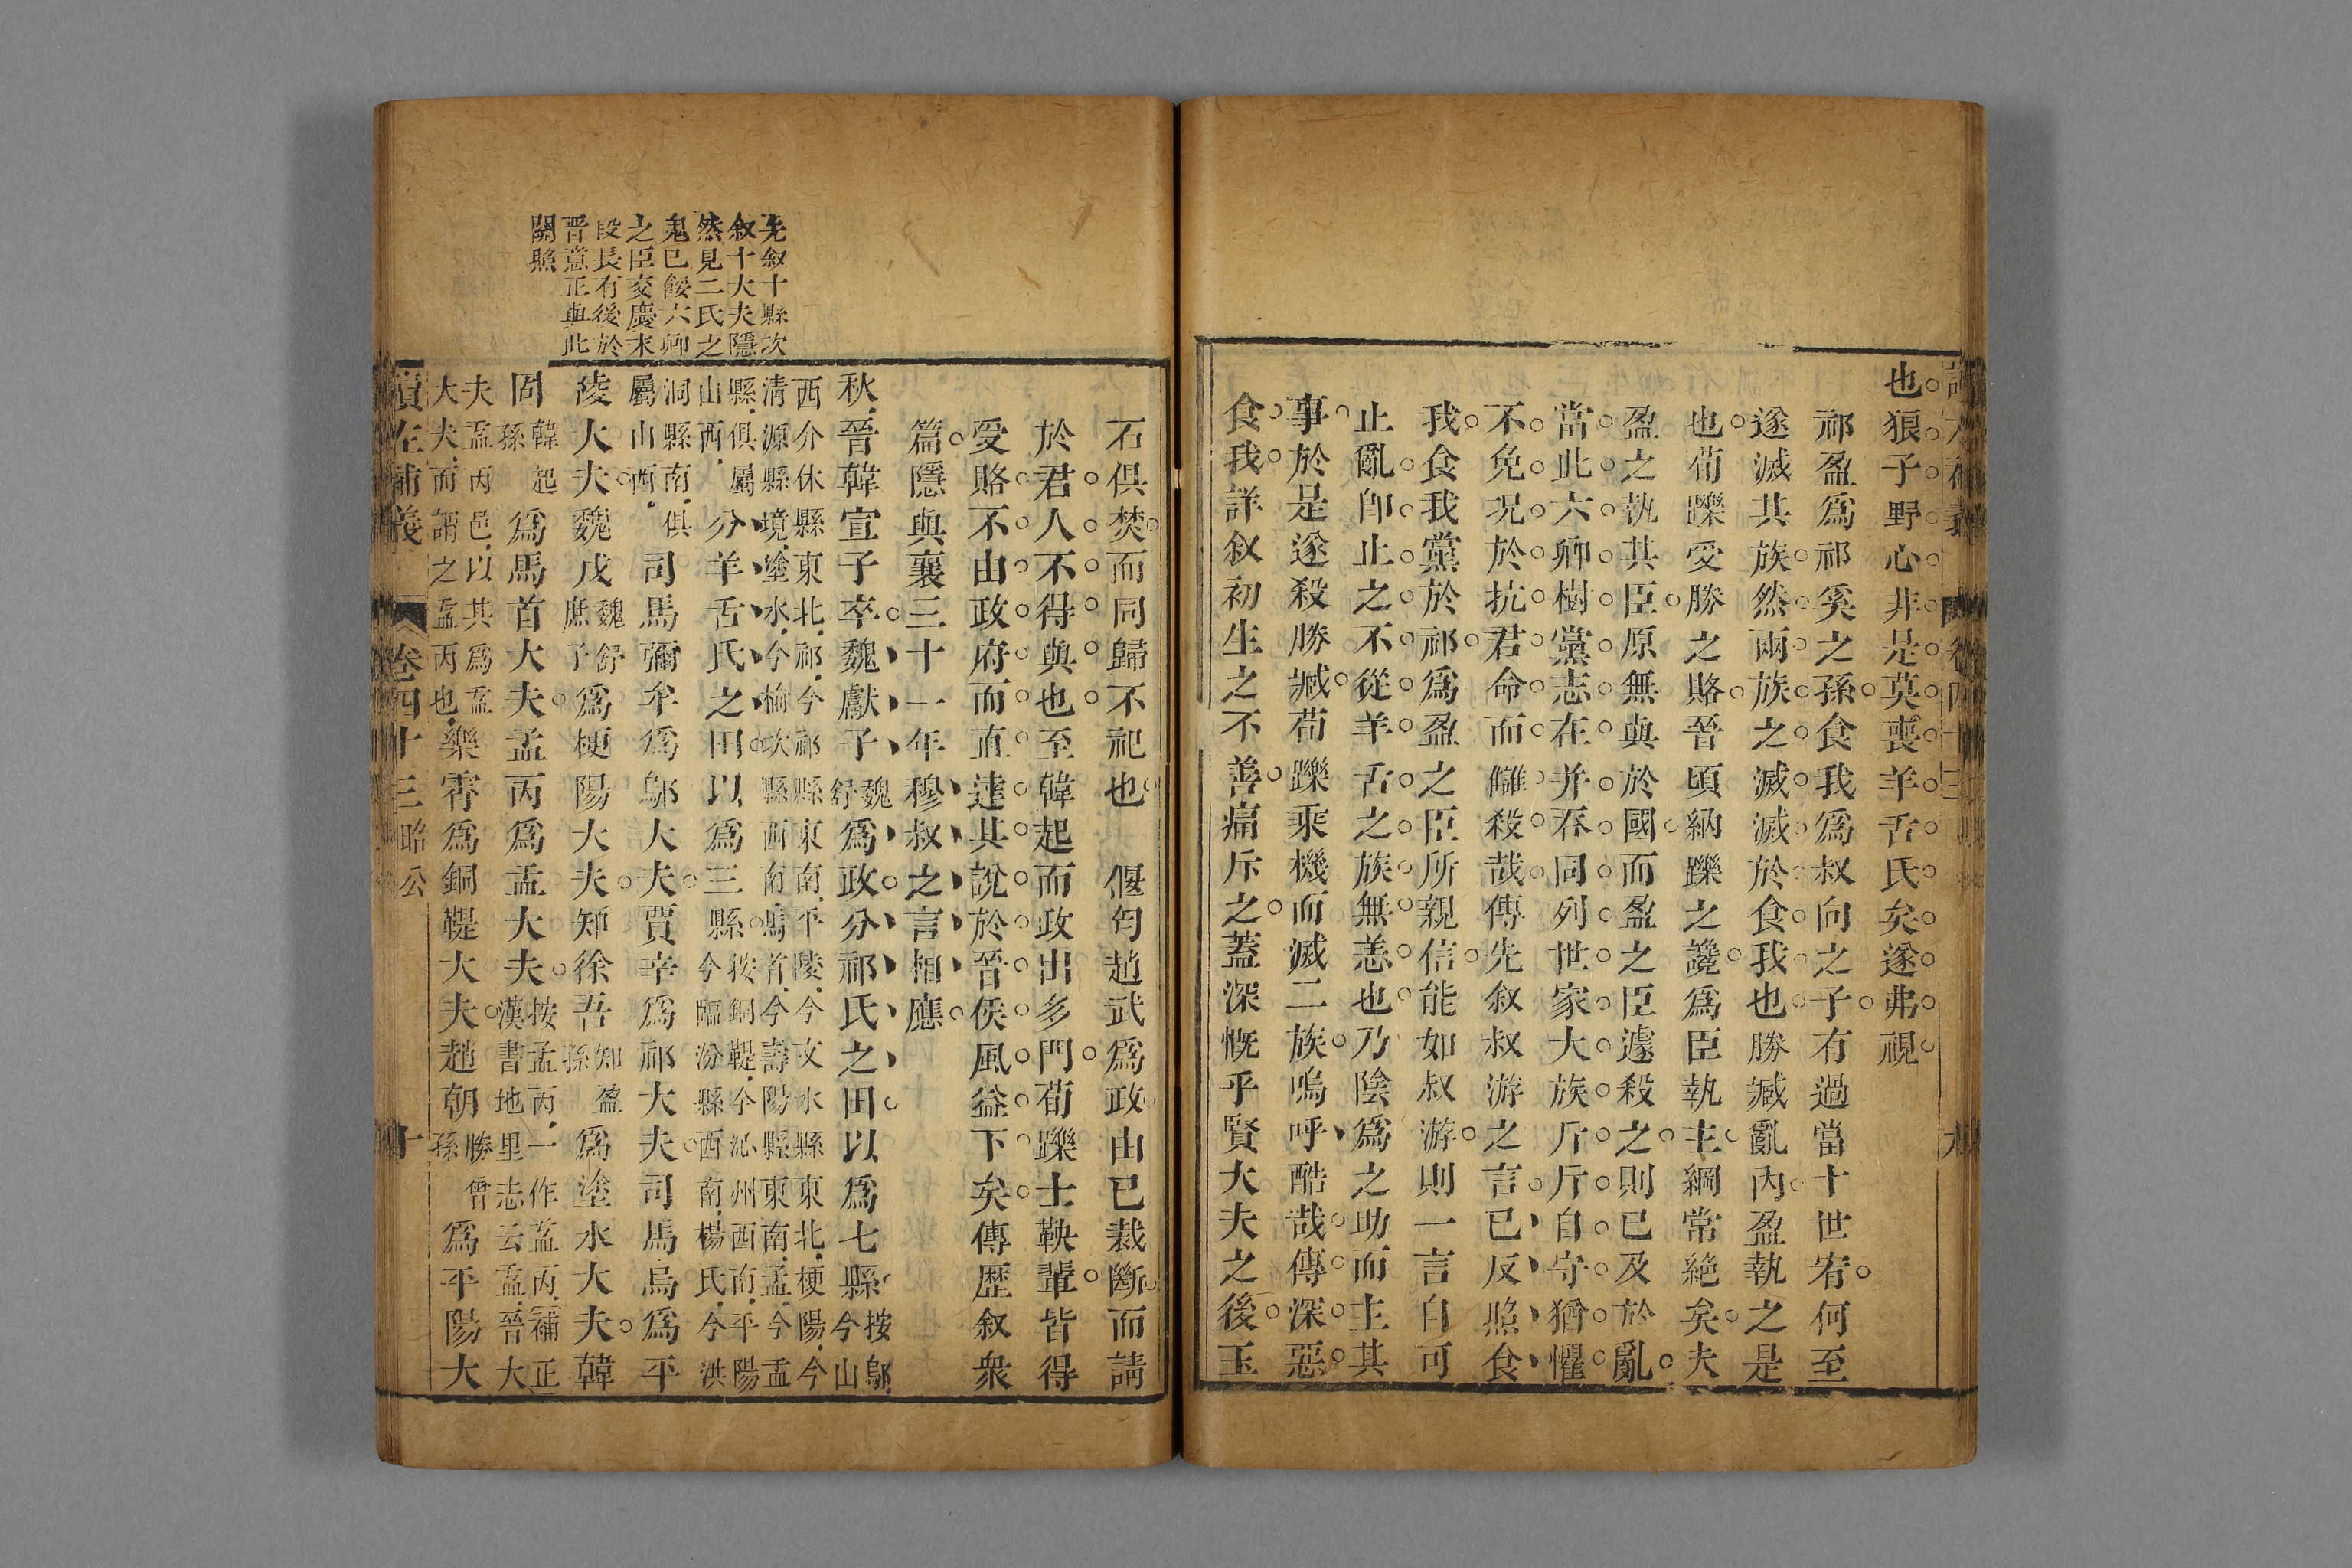 也狼子野心非是莫喪羊舌氏矣遂弗視
祁盈為祁奚之孫食我為叔向之子有過當十世宥何至
遂滅其族然兩族之滅滅於食我也勝臧亂內盈執之是
也荀躒受勝之賂晉頃納躒之讒為臣執主綱常絕矣夫
盈之執其臣原無與於國而盈之臣遽殺之則已及於亂
當此六卿樹黨志在并吞同列世家大族斤斤自守猶懼
不免況於抗君命而讎殺哉傳先叙叔游之言已反照食
我食我黨於祁為盈之臣所親信能如叔游則一言自可
止亂卽止之不從羊舌之族無恙也乃陰為之助而主其
事於是遂殺勝臧荀躒乘機而滅二族嗚呼酷哉傳深惡
食我詳叙初生之不善痛斥之蓋深慨乎賢大夫之後玉
石俱焚而同歸不祀也　偃匄趙武為政由已裁斷而請
於君人不得與也至韓起而政出多門荀躒士鞅輩皆得
受賂不由政府而直達其說於晉侯風益下矣傳歷叙衆
篇隱與襄三十一年穆叔之言相應
先叙十縣次
叙十大夫隱
然見二氏之
鬼已餒六卿
之臣交慶末
段長有後於
晉意正與此
關照
秋晉韓宣子卒魏獻子魏舒為政分祁氏之田以為七縣按鄔今山
西介休縣東北祁今祁縣東南平陵今文水縣東北梗陽今
清源縣境塗水今榆次縣西南馬首今壽陽縣東南孟今孟
縣俱屬山西分羊舌氏之田以為三縣按銅鞮今沁州西南平陽今臨汾縣西南楊氏今洪
洞縣南俱屬山西司馬彌牟為鄔大夫賈辛為祁大夫司馬烏為平
陵大夫魏戊魏舒庶子為梗陽大夫知徐吾知盈孫為塗水大夫韓
固韓起孫為馬首大夫孟丙為孟大夫按孟丙一作盂丙補正漢書地里志云盂晉大
夫孟丙邑以其為孟大夫而謂之盂丙也樂霄為銅鞮大夫趙朝勝曾孫為平陽大
讀左補義　卷四十三　昭公　十